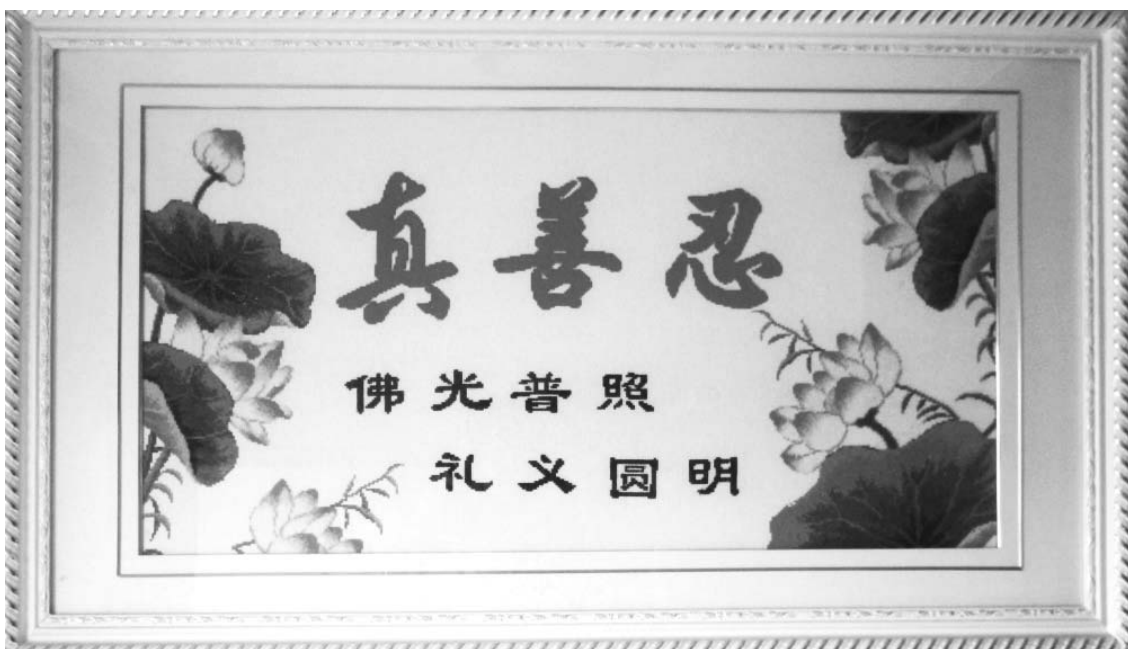 真善忍
佛光普照
礼义圆明